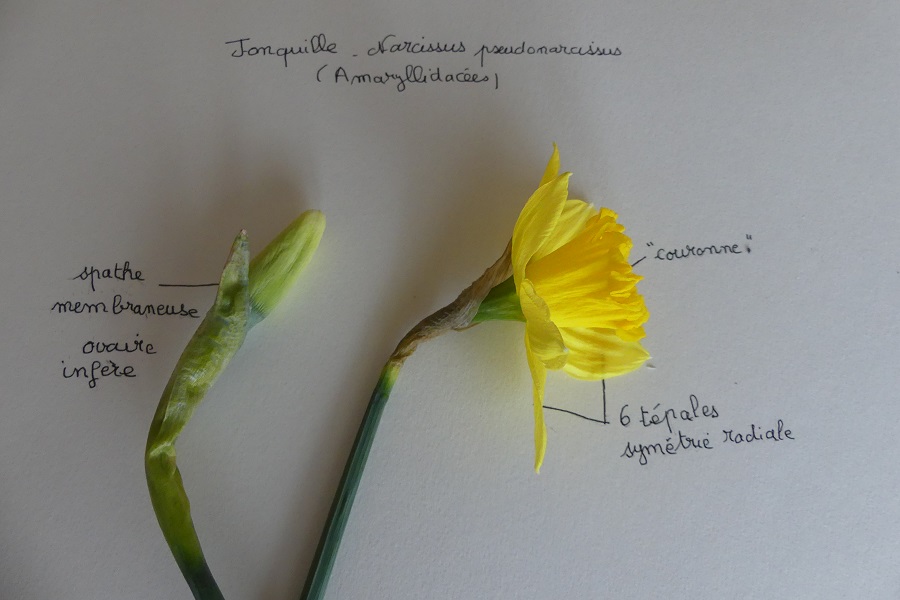 Jonquille - Narcissus pseudonarcissus
(Amaryllidacées)
spathe
membraneuse
ovaire
infère
"couronne"
6 tépales
symétrie radiale